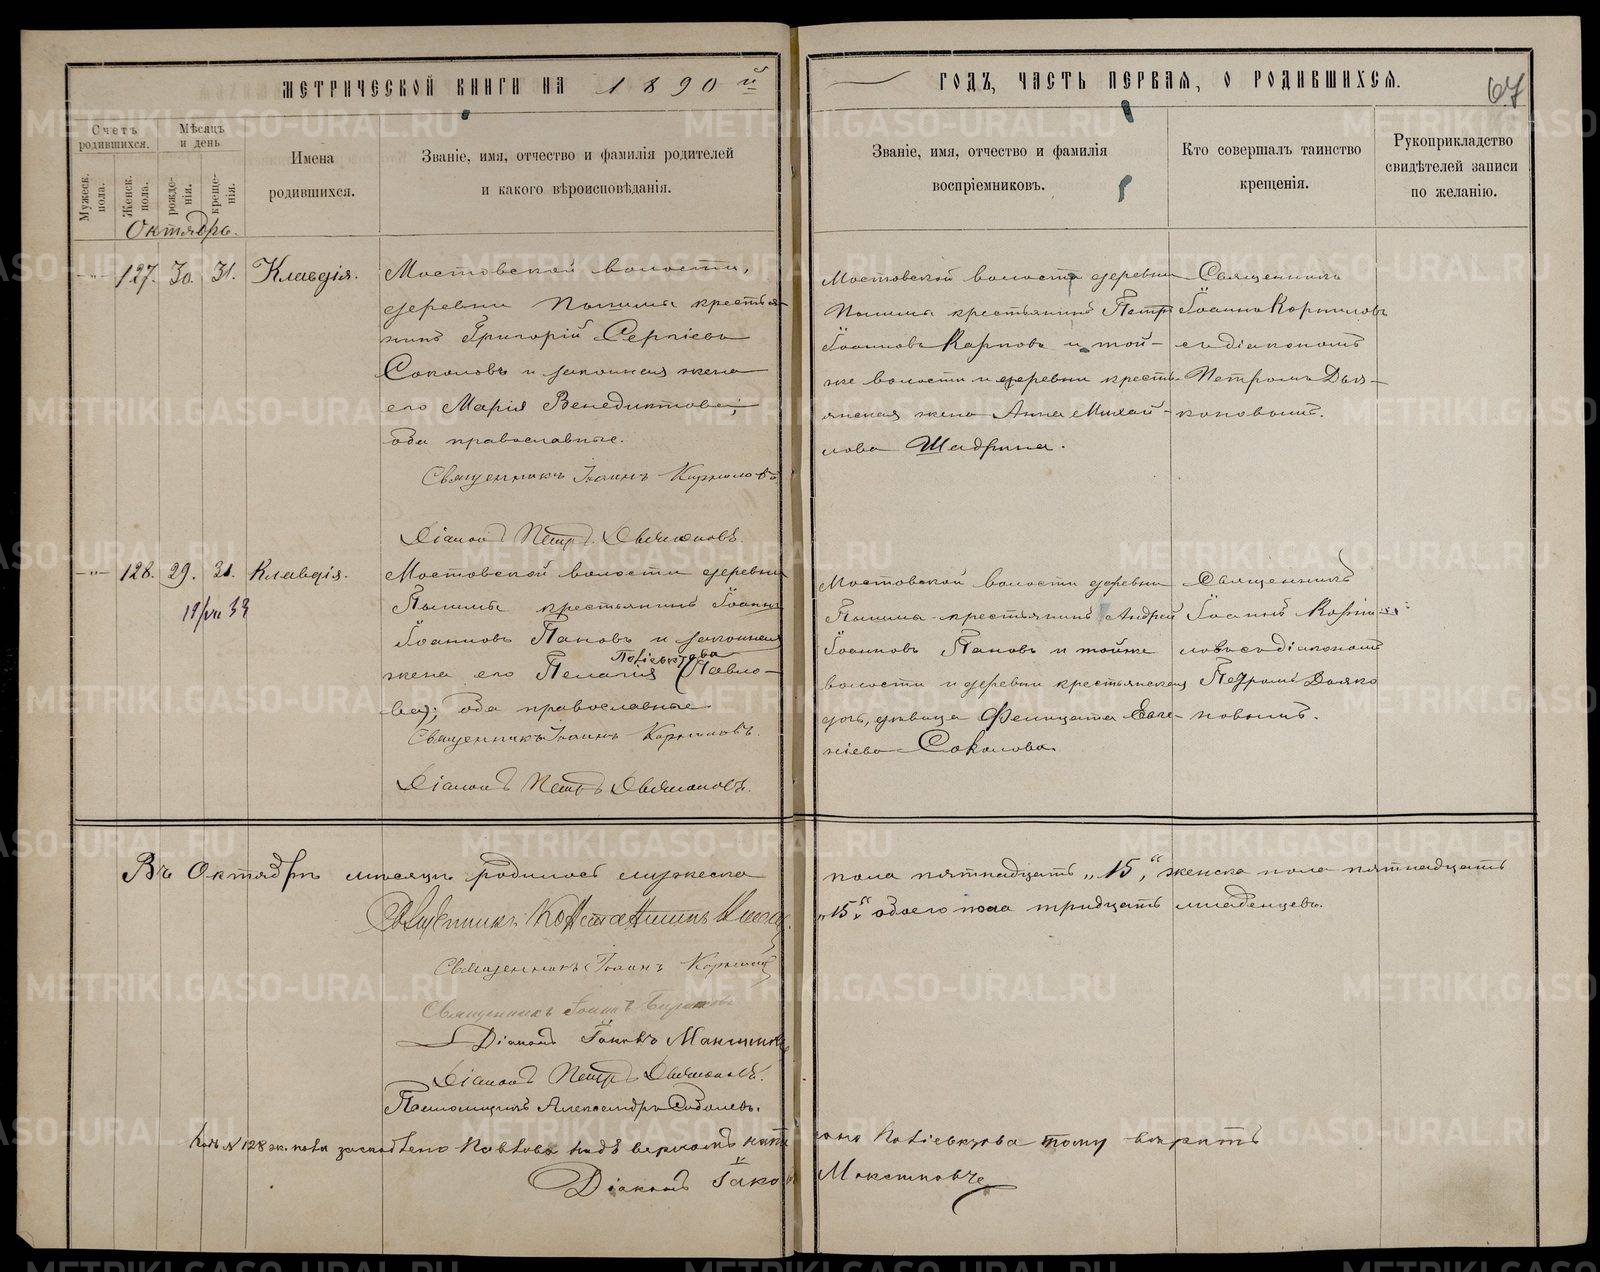 МЕТРИЧЕСКОЙ КНИГИ НА 1890 й
ГОДЪ, ЧАСТЬ ПЕРВАЯ, О РОДИВШИХСЯ.
67
Счетъ родившихся.
Мужеск. пола.
Женск. пола.
Мѣсяцъ и день
рожде-нія.
креще-нія.
Имена
родившихся.
Званіе, имя, отчество и фамилія родителей
и какого вѣроисповѣданія.
Званіе, имя, отчество и фамилія
воспріемниковъ.
Кто совершалъ таинство
крещенія.
Рукоприкладство
свидѣтелей записи
по желанію.
Октябрь.
127. 30. 31. Клавдія.
Мостовской волости,
деревни Пышмы крестья-
нинъ Григорій Сергіевъ
Соколовъ и законная жена
его Марія Венедиктова;
оба православные.
Священникъ Іоаннъ Корниловъ
Діаконъ Петръ
Мостовской волости деревни
Пышмы крестьянинъ Петръ
Іоанновъ Карповъ и той-
же волости и деревни кресть-
янская жена Анна Михай-
лова Шадрина.
Священникъ
Іоаннъ Корниловъ
съ діакономъ
Петромъ Дья-
коновымъ.
128. 29. 31. Клавдія.
Мостовской волости деревни
Пышмы крестьянинъ Іоаннъ
Іоанновъ Пановъ и законная
Поліевктова
жена его Пелагія (Павло-
ва); оба православные
Священникъ Іоаннъ Корниловъ.
Діаконъ Петръ
Мостовской волости деревни
Пышмы крестьянинъ Андрей
Іоанновъ Пановъ и тойже
волости и деревни крестьянская
дочь, дѣвица Фелицата Евге-
ніева Соколова.
Священникъ
Іоаннъ Корни-
ловъ съ діакономъ
Петромъ Дьяко
новымъ.
Въ Октябрѣ мѣсяцѣ родилось мужеска
пола пятнадцать „15", женска пола пятнадцать
„15" обоего пола тридцать младенцевъ.
Священникъ Константинъ
Священникъ Іоаннъ Корниловъ
Священникъ Іоаннъ
Діаконъ Іаковъ
Діаконъ Петръ
Псаломщикъ Александръ Соболевъ.
Подъ N 128 ж. пола Павлова надъ верхомъ напи
сано Поліевктова тому вѣрить
Діаконъ Іаковъ